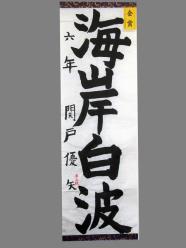 金賞
海岸白波
六年 関戸優矢